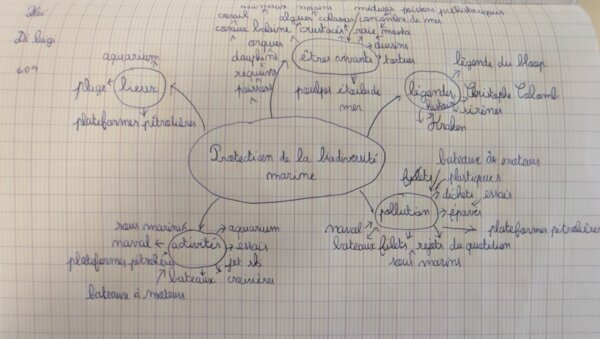 Di luigi
604
animaux marins méduses poissons préhistoriques
corail algues calamar concombre de mer
coraux baleine crustacés raie manta
orques
dauphins
requins
poissons
êtres vivants
oursins
tortues
poulpes étoile de mer
aquarium
plage
lieux
plateformes pétrolières
légende du bloop
légendes
Christophe Colomb
sirènes
Kraken
Protection de la biodiversité marine
bateaux à moteurs
filets
plastiques
déchets
essais
pollution
épaves
plateformes pétrolières
naval
bateaux
filets
rejets du quotidien
sous marins
sous marins
aquarium
naval
activités
essais
plateformes pétrolières
jet ski
bateaux
croisières
bateaux à moteurs